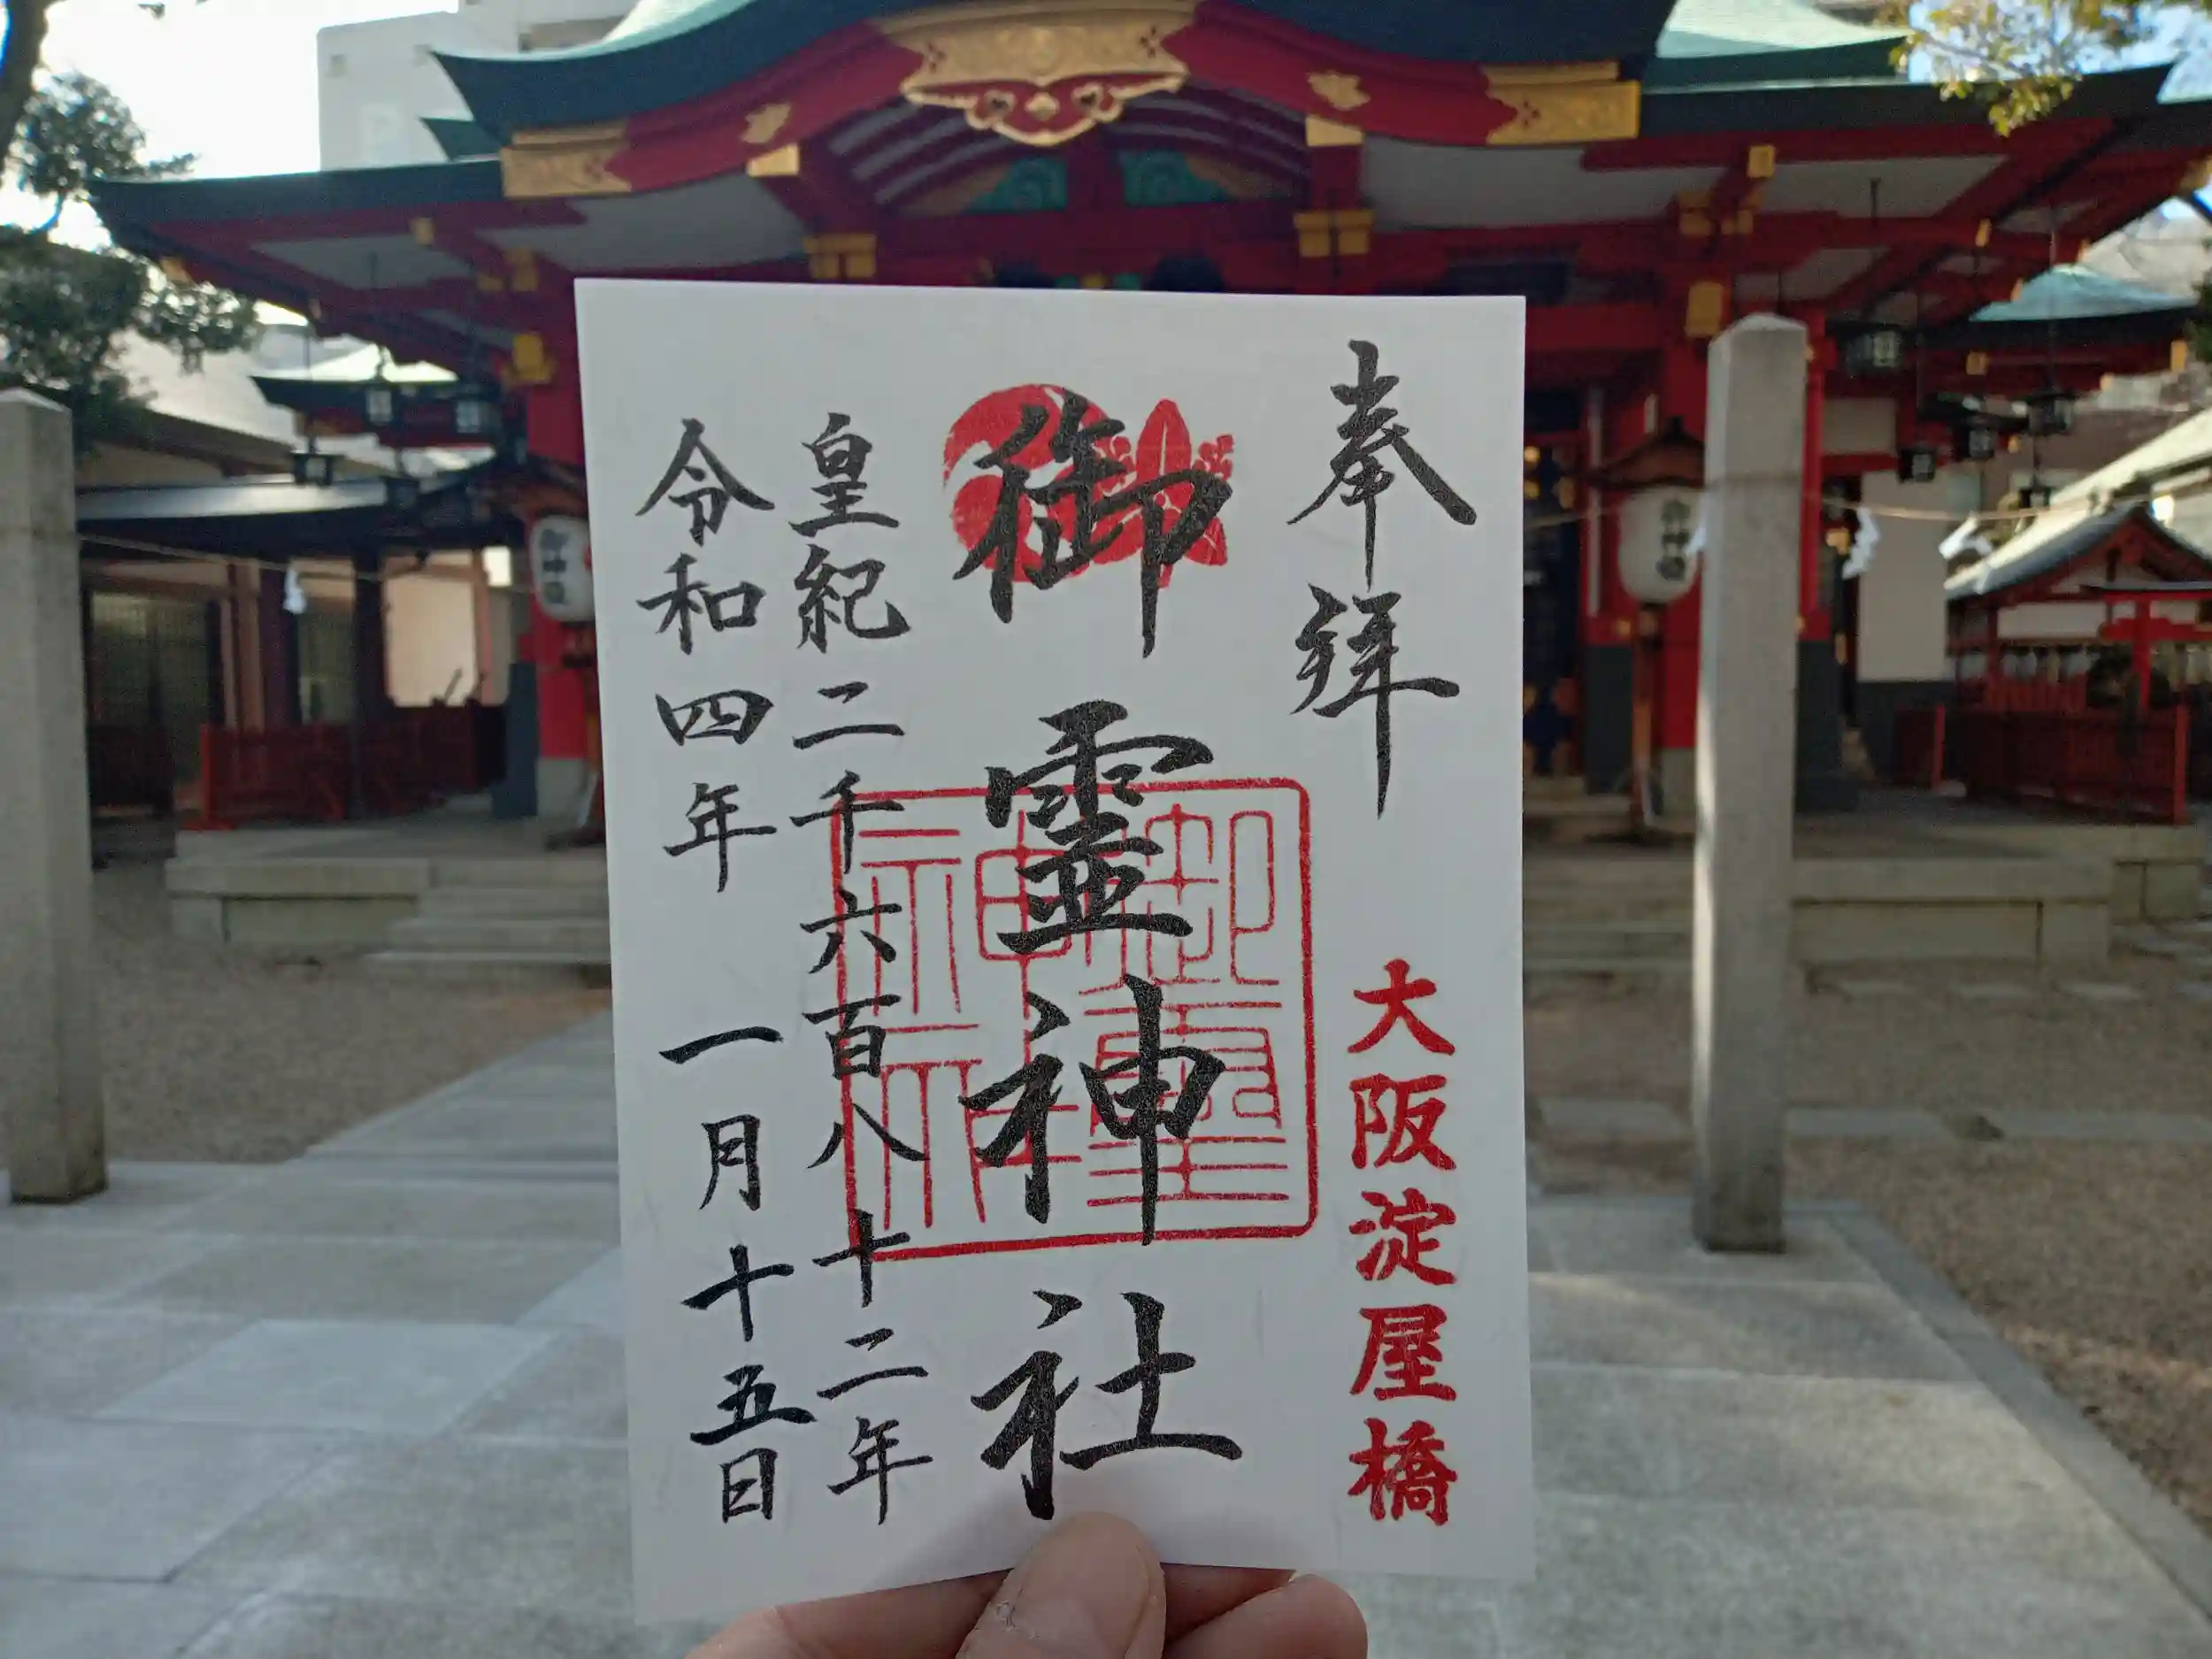 奉拝
大阪淀屋橋
御霊神社
御霊神社
皇紀二千六百八十二年
令和四年 一月十五日